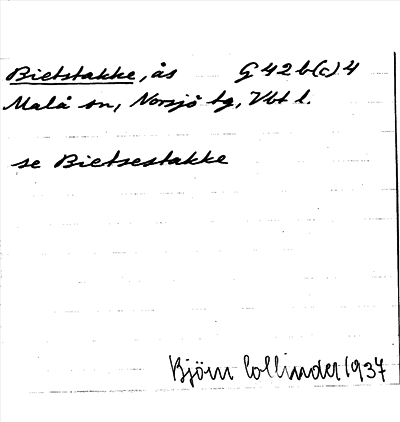 Bietstakke, ås G 42 b(c) 4
Malå sn, Norsjö tg, Vbt l.
se Bietsestakke
Björn Collinder 1937